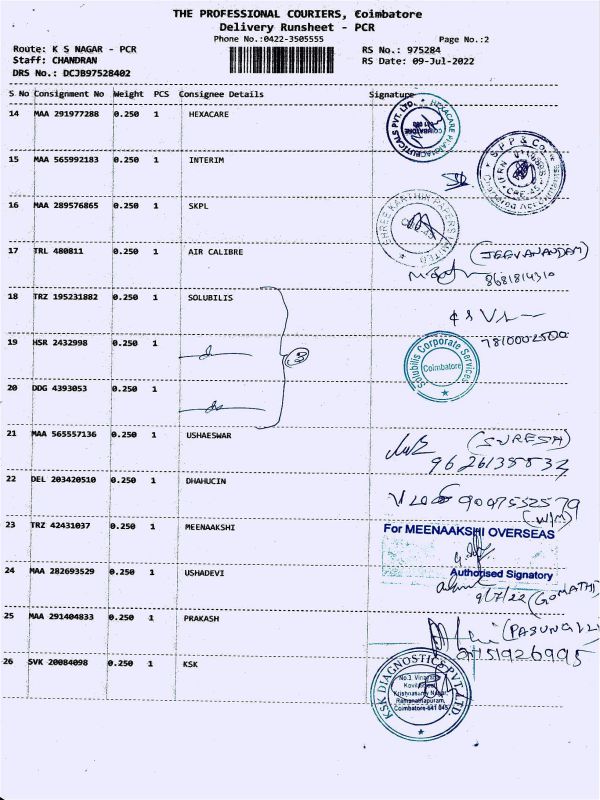 THE PROFESSIONAL COURIERS, Coimbatore
Delivery Runsheet - PCR
Phone No.:0422-3505555
Page No.:2
Route: K S NAGAR - PCR
RS No.: 975284
Staff: CHANDRAN
RS Date: 09-Jul-2022
DRS No.: DCJB97528402
S No Consignment No Weight PCS Consignee Details Signature
14 MAA 291977288 0.250 1 HEXACARE
HEXACARE PHARMACEUTICALS PVT. LTD. COIMBATORE
15 MAA 565992183 0.250 1 INTERIM
S P P & Co
16 MAA 289576865 0.250 1 SKPL
SHREE KARTHIK PAPERS LIMITED
17 TRL 480811 0.250 1 AIR CALIBRE
(JEEVANANDAM)
8681814310
18 TRZ 195231882 0.250 1 SOLUBILIS
7810002500
19 HSR 2432998 0.250 1
3
Solubilis Corporate Services Coimbatore
20 DDG 4393053 0.250 1
21 MAA 565557136 0.250 1 USHAESWAR
(SURESH)
9626135532
22 DEL 203420510 0.250 1 DHAHUCIN
9047532579
(W/M)
23 TRZ 42431037 0.250 1 MEENAAKSHI
For MEENAAKSHI OVERSEAS
Authorised Signatory
24 MAA 282693529 0.250 1 USHADEVI
9/7/22 (GOMATHI)
25 MAA 291404833 0.250 1 PRAKASH
26 SVK 20084098 0.250 1 KSK
KSK DIAGNOSTICS PVT. LTD.
Krishnasamy Nagar
Ramanathapuram,
Coimbatore-641 045